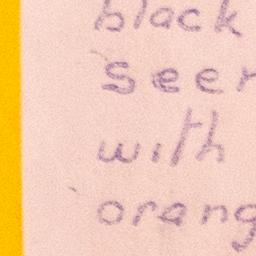 black
seer
with
orang